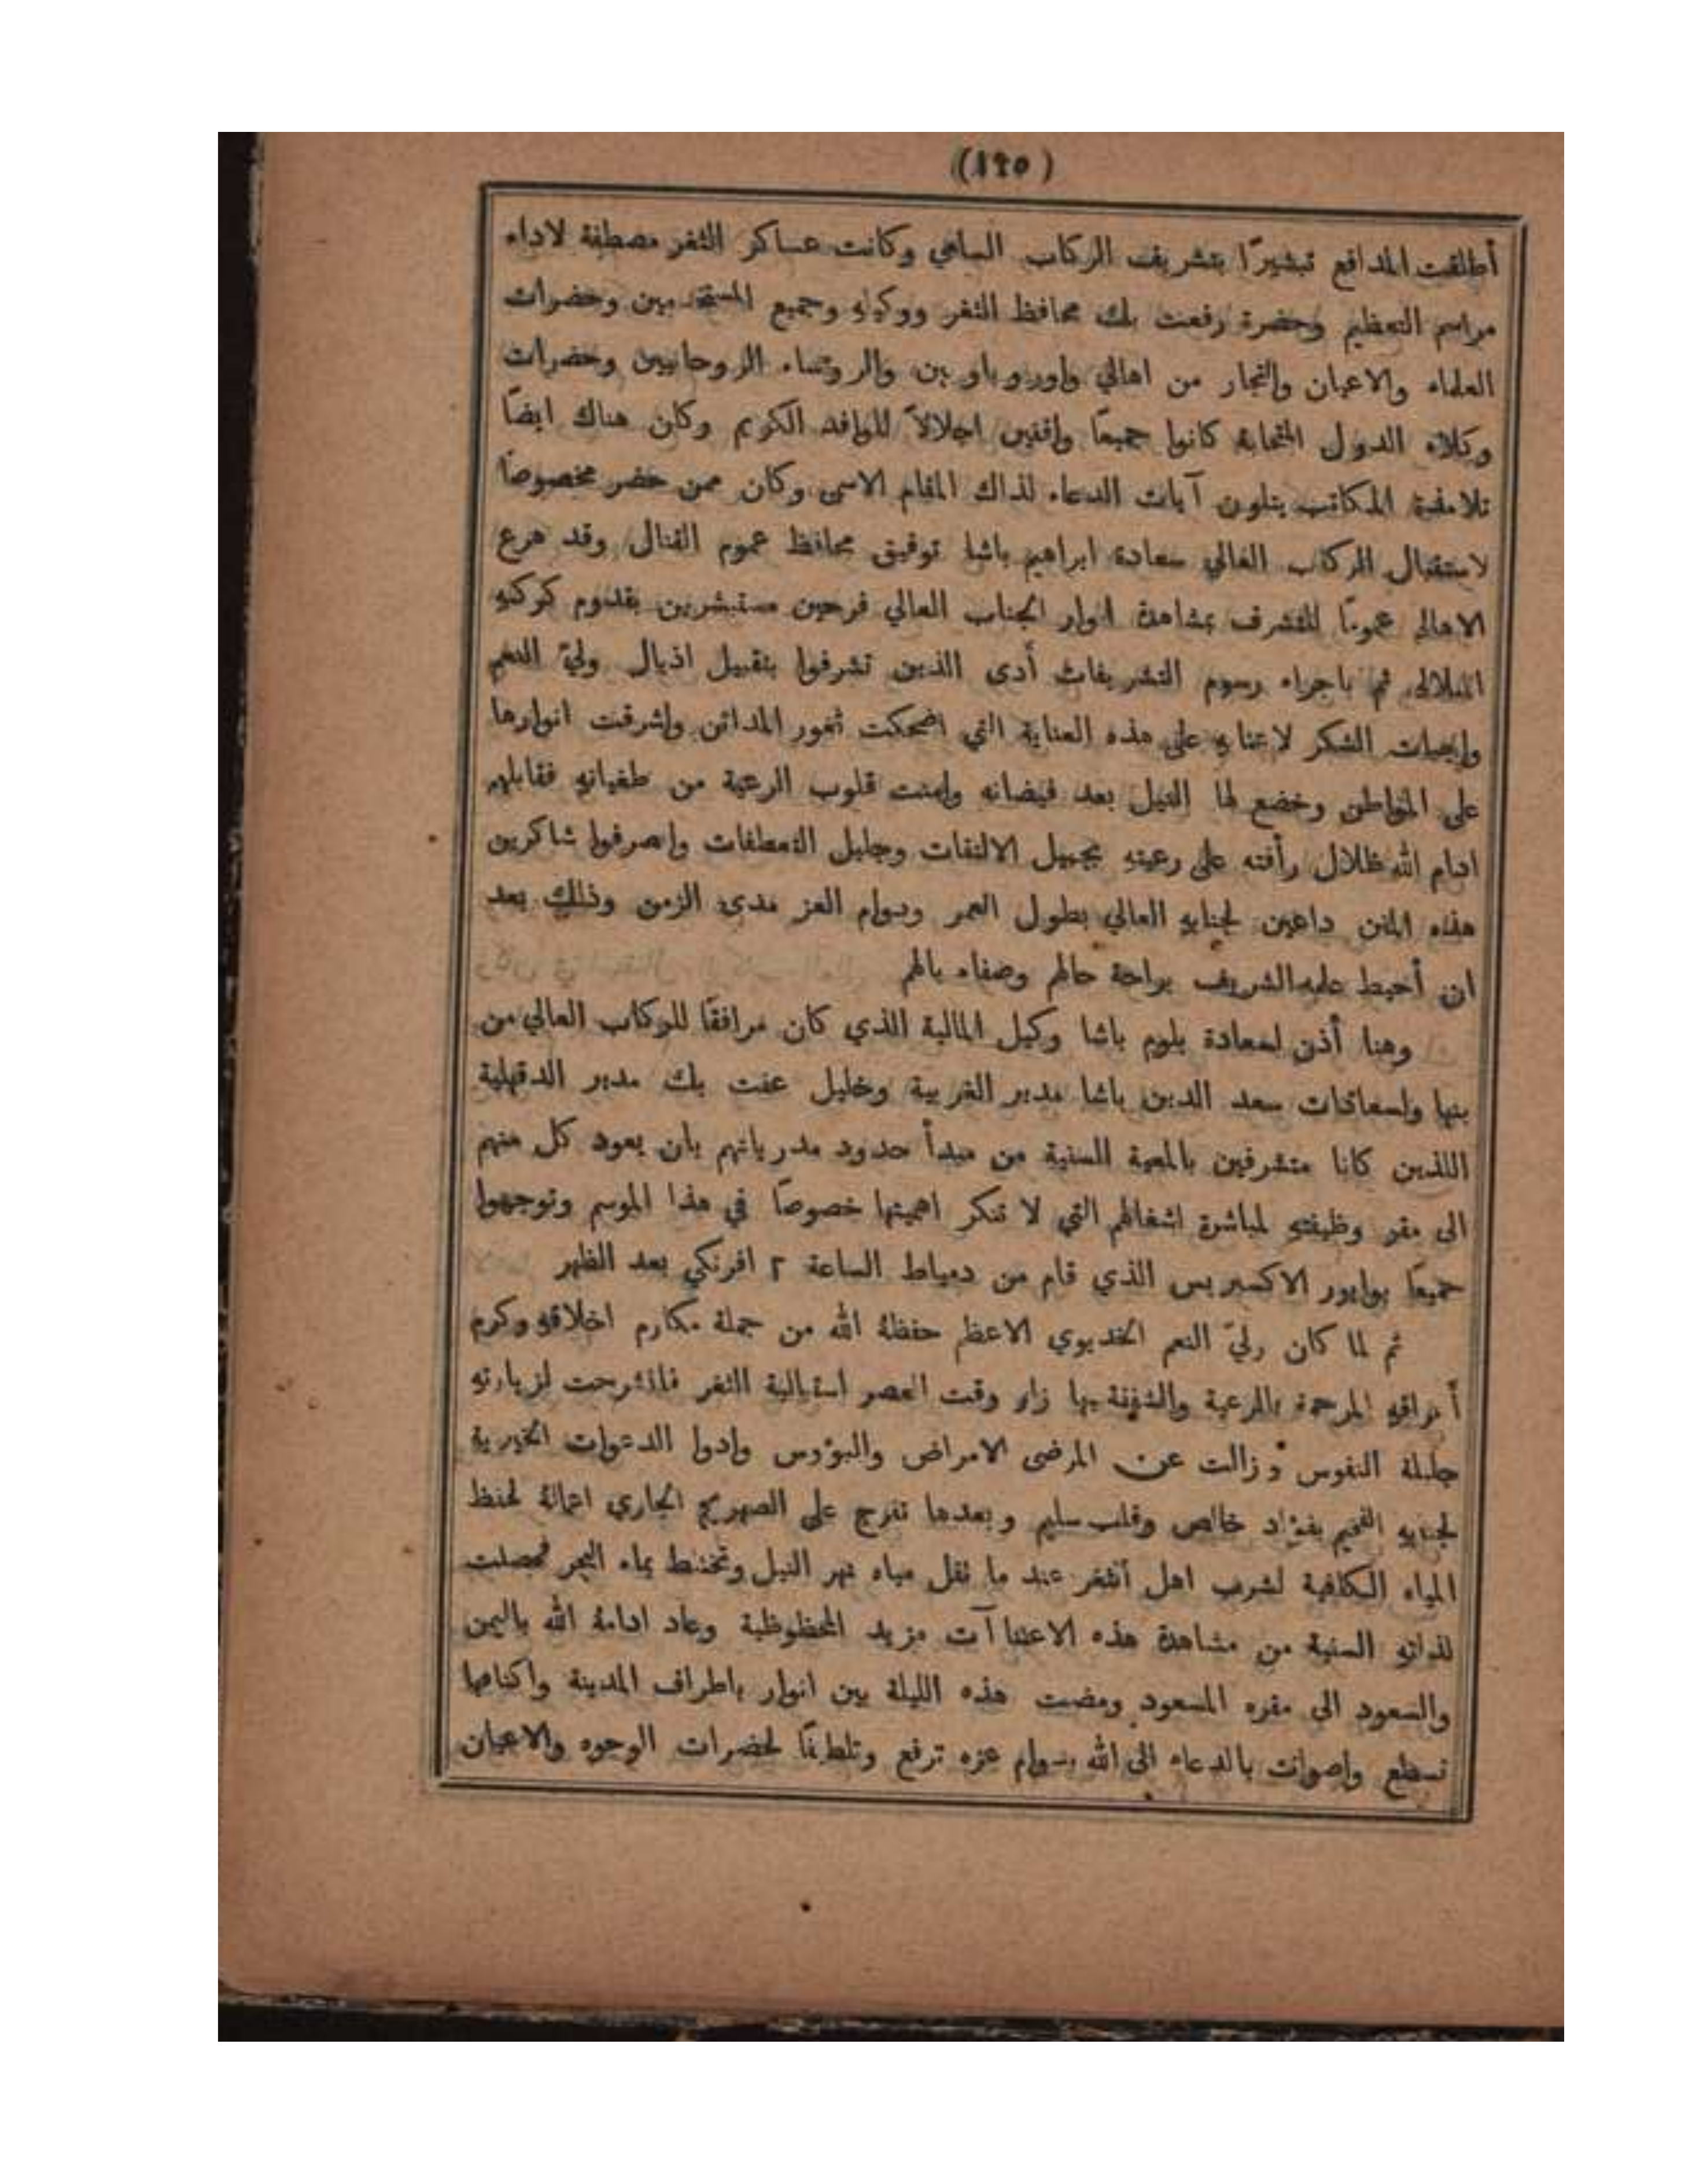 (١٢٥)
أطلقت المدافع تبشيرًا بتشريف الركاب السامي وكانت عساكر الثغر مصطفة لاداء
مراسم التعظيم وحضرة رفعت بك محافظ الثغر ووكيله وجميع المستخدمين وحضرات
العلماء والاعيان والتجار من اهالي واوروباويين والروئساء الروحانيين وحضرات
وكلاء الدول المتحابة كانوا جميعًا واقفين اجلالاً للوافد الكريم وكان هناك ايضًا
تلامذة المكاتب يتلون آيات الدعاء لذاك المقام الاسمى وكان ممن حضر مخصوصًا
لاستقبال الركاب العالي سعادة ابراهيم باشا توفيق محافظ عموم القنال وقد هرع
الاهالي عمومًا للتشرف بمشاهدة انوار الجناب العالي فرحين مستبشرين بقدوم كوكبه
المتلالي ثم باجراء رسوم التشريفات أدى الذين تشرفوا بتقبيل اذيال وليّ النعم
واجبات الشكر لاعتابهِ على هذه العناية التي اضحكت ثغور المدائن واشرقت انوارها
على المواطن وخضع لها النيل بعد فيضانه وامنت قلوب الرعية من طغيانهِ فقابلهم
ادام الله ظلال رأفته على رعيتهِ بجميل الالتفات وجليل التعطفات وانصرفوا شاكرين
هذه المنن داعين لجنابهِ العالي بطول العمر ودوام العز مدى الزمن وذلك بعد
ان أحيط علمه الشريف براحة حالهم وصفاء بالهم
وهنا أذن لسعادة بلوم باشا وكيل المالية الذي كان مرافقًا للركاب العالي من
بنها ولسعادات سعد الدين باشا مدير الغربية وخليل عفت بك مدير الدقهلية
اللذين كانا متشرفين بالمعية السنية من مبدأ حدود مدرياتهم بان يعود كل منهم
الى مقر وظيفتهِ لمباشرة اشغالهم التي لا تنكر اهميتها خصوصًا في هذا الموسم وتوجهوا
جميعًا بوابور الاكسبريس الذي قام من دمياط الساعة ٢ افرنكي بعد الظهر
ثم لما كان وليّ النعم الخديوي الاعظم حفظهُ الله من جملة مكارم اخلاقهِ وكرم
المرحمة بالرعية والشفقة بها زار وقت العصر اسبتالية الثغر فانشرحت لزيارتهِ
جليلة النفوس وزالت عن المرضى الامراض والبؤوس وادوا الدعوات الخيرية
لجنابهِ الفخيم بفؤاد خالص وقلب سليم وبعدها تفرج على الصهريج الجاري اعمالهُ لحفظ
المياه الكافية لشرب اهل الثغر عند ما تقل مياه نهر النيل وتختلط بماء البحر فحصلت
لذاتهِ السنية من مشاهدة هذه الاعتناآت مزيد المحظوظية وعاد ادامهُ الله باليمن
والسعود الى مقره المسعود ومضت هذه الليلة بين انوار باطراف المدينة واكنافها
تسطع واصوات بالدعاء الى الله بدوام عزه ترفع وتلطفًا لحضرات الوجوه والاعيان